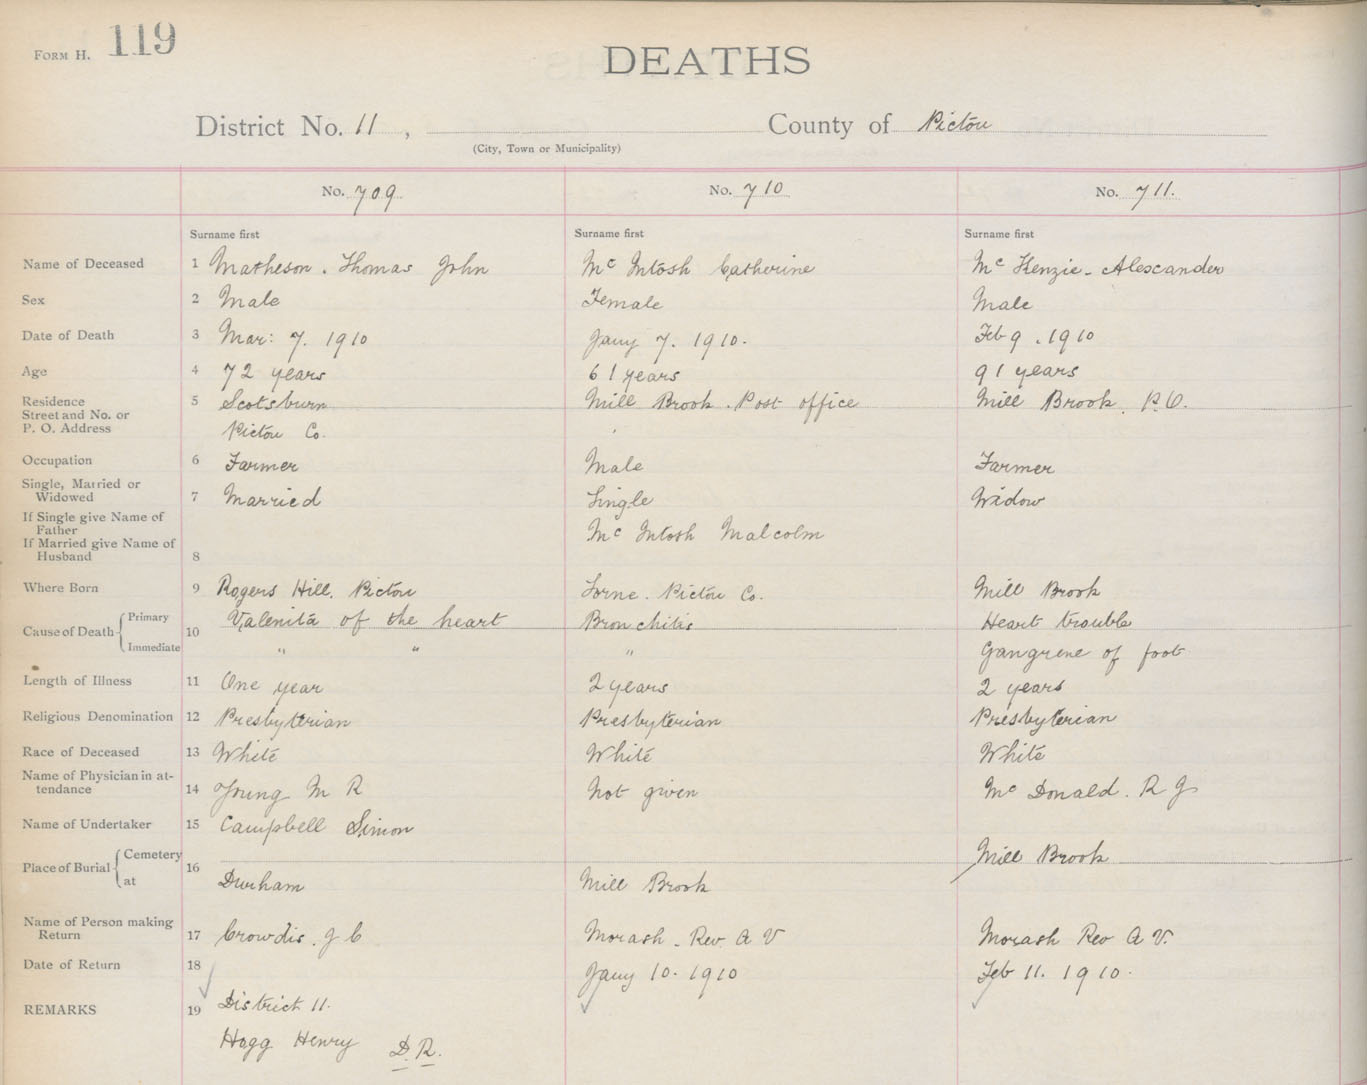 FORM H. 119
DEATHS
District No. 11 , County of Pictou
(City, Town or Municipality)
No. 709 No. 710 No. 711.
Surname first Surname first Surname first
Name of Deceased 1 Matheson. Thomas John Mc Intosh Catherine Mc Kenzie - Alexcander
Sex 2 Male Female Male
Date of Death 3 Mar: 7. 1910 Jany 7. 1910. Feb 9. 1910
Age 4 72 years 61 years 91 years
Residence 5 Scotsburn Mill Brook. Post office Mill Brook. P.O.
Street and No. or
P. O. Address Pictou Co.
Occupation 6 Farmer Male Farmer
Single, Married or
Widowed 7 Married Single Widow
If Single give Name of
Father Mc Intosh Malcolm
If Married give Name of
Husband 8
Where Born 9 Rogers Hill. Pictou Lorne. Pictou Co. Mill Brook
Cause of Death Primary 10 Valenita of the heart Bronchitis Heart trouble
Immediate " " " Gangrene of foot
Length of Illness 11 One year 2 years 2 years
Religious Denomination 12 Presbyterian Presbyterian Presbyterian
Race of Deceased 13 White White White
Name of Physician in at-
tendance 14 Young M R Not given Mc Donald. R J
Name of Undertaker 15 Campbell Simon
Place of Burial Cemetery 16 Mill Brook
at Durham Mill Brook
Name of Person making
Return 17 Crowdis. J C Morash - Rev. A V Morash Rev A V.
Date of Return 18 Jany 10. 1910 Feb 11. 1910.
REMARKS 19 District 11.
Hogg Henry D.R.